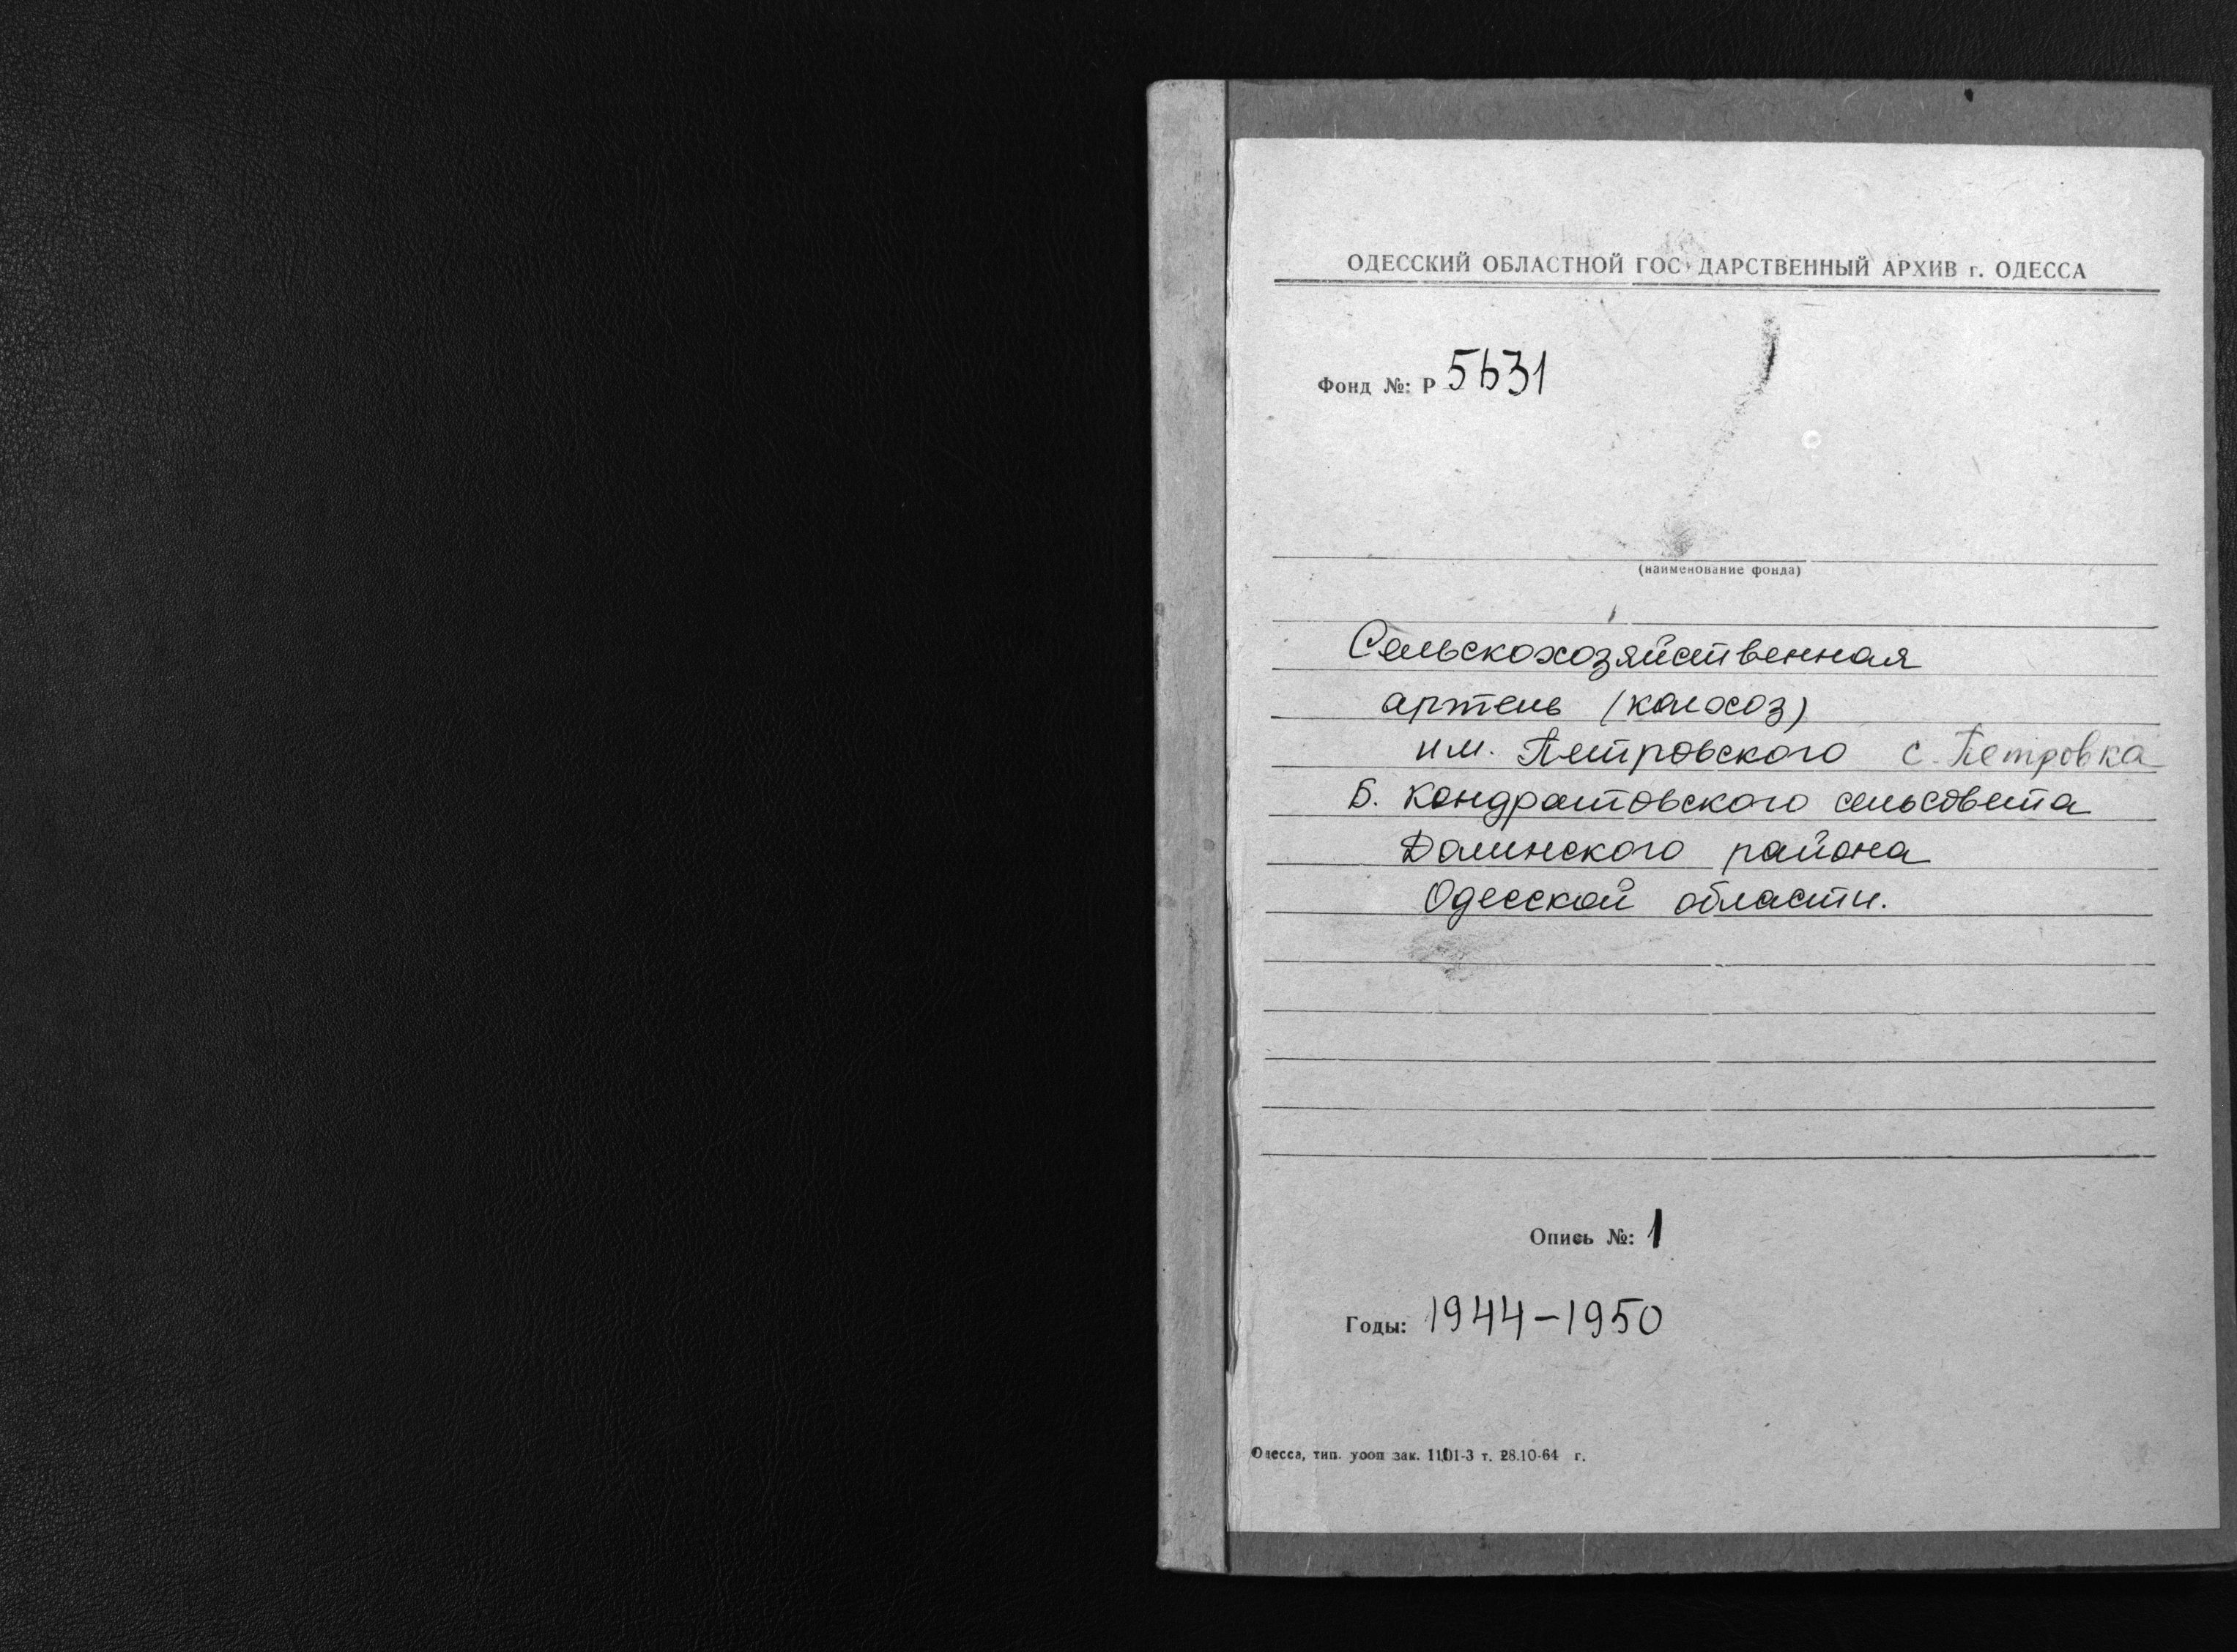 ОДЕССКИЙ ОБЛАСТНОЙ ГОСУДАРСТВЕННЫЙ АРХИВ г. ОДЕССА
Фонд №: Р 5631
(наименование фонда)
Сельскохозяйственная
артель (колхоз)
им. Петровского с. Петровка
Б. Кондратовского сельсовета
Долинского района
Одесской области.
Опись №: 1
Годы: 1944-1950
Одесса, тип. уооп зак. 1101-3 т. 28.10-64 г.